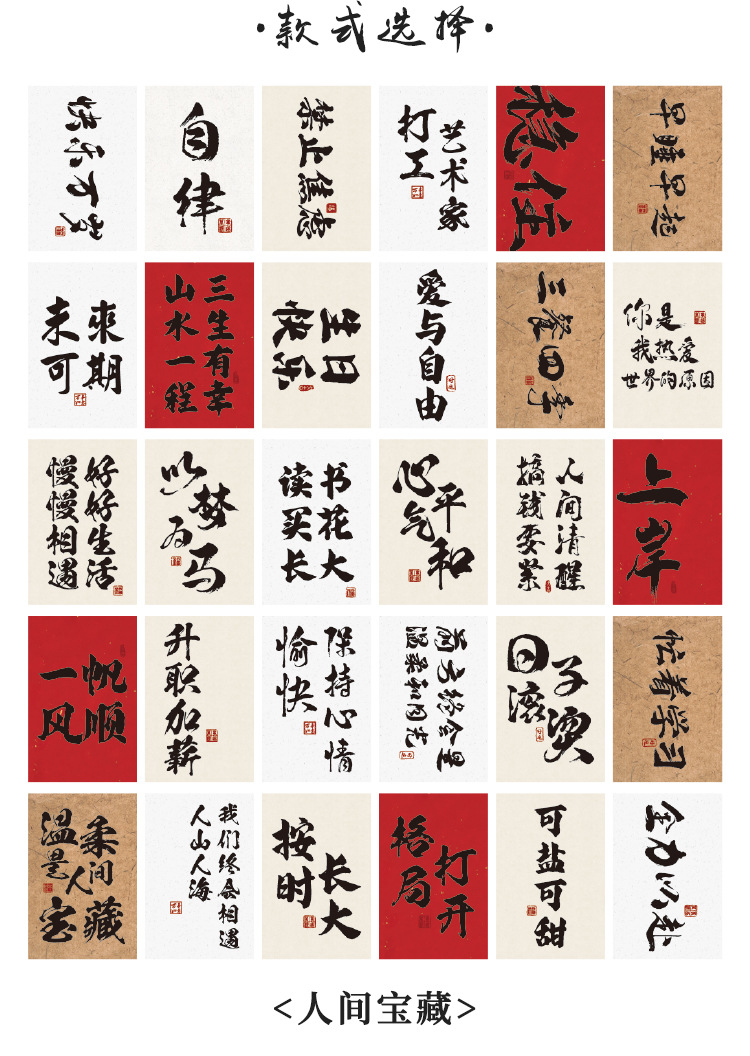 ·款式选择·
快乐万岁
自律
禁止焦虑
打工
艺术家
稳住
早睡早起
未來
可期
三生有幸
山水一程
生日
快乐
爱与自由
三餐四季
你是
我热爱
世界的原因
好好生活
慢慢相遇
以梦
为马
读书
买花
长大
心平
气和
人间清醒
搞钱要紧
上岸
一帆
风顺
升职加薪
保持心情
愉快
前方终会是
温柔和月光
日子
滚烫
忙着学习
温柔
是人间
宝藏
我们终会相遇
人山人海
按时
长大
打开
格局
可盐可甜
全力以赴
<人间宝藏>